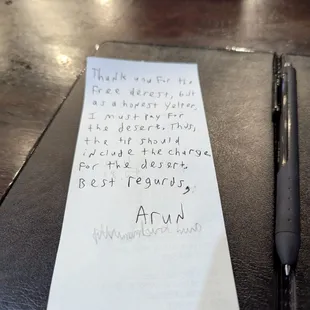 Thank you for the
free derest, but
as a honest yelper,
I must pay for
the desert. Thus,
the tip should
include the charge
for the desert.
Best regurds,
Arun